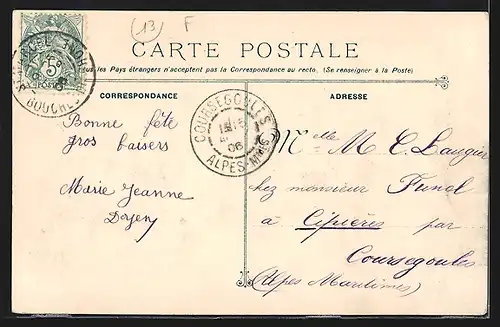 (13) F
CARTE POSTALE
Tous les Pays étrangers n'acceptent pas la Correspondance au recto. (Se renseigner à la Poste)
CORRESPONDANCE
ADRESSE
Bonne fête
gros baisers
Marie Jeanne
COURSEGOULES
06
ALPES
BOUCHES
5
Mlle M C Laugier
chez monsieur Funel
à Cipières par
Coursegoules
(Alpes Maritimes)